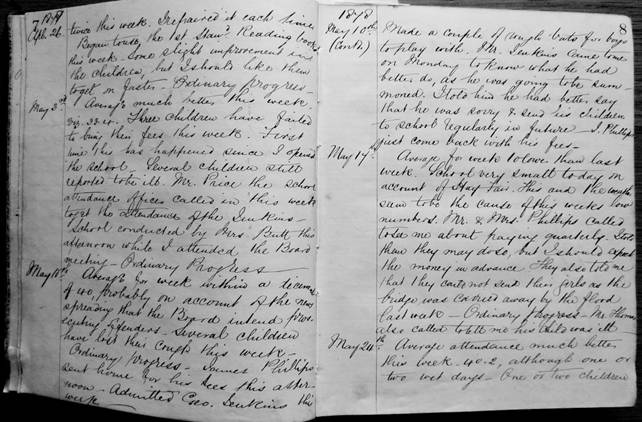 1878
Apl. 26.
twice this week. I repaired it each time
Began to use the 1st Stand. Reading books
this week. Some slight improvement in
the children, but I should like them
to get on faster - Ordinary progress -
May 3rd
Average much better this week
viz. 33.10. Three children have failed
to bring their fees this week. First
time this has happened since I opened
the school. Several children still
reported to be ill. Mr. Price the school
attendance officer called in this week
to get the attendance of the Jenkins -
School conducted by Mrs. Butt this
afternoon while I attended the Board
meeting - Ordinary Progress
May 10th
Average for week within a decimal
of 40, probably on account of the news
spreading that the Board intend prose-
cuting offenders - Several children
have bad this Cough this week -
Ordinary progress - James Phillips
sent home for his fees this after-
noon - Admitted Geo. Jenkins this
week
8
1878
May 10th
(Contd.)
Made a couple of rough bats for boys
to play with. Mr. Jenkins came here
on Monday to know what he had
better do, as he was going to be sum-
moned. I told him he had better say
that he was sorry & send his children
to school regularly in future - J. Phillips
just come back with his fees -
May 17th
Average for week 10 lower than last
week. School very small today on
account of Hay Fair. This and the
seem to be the cause of this weeks low
numbers. Mr. & Mrs. Phillips called
to see me about paying quarterly. I told
them they may do so, but I should expect
the money in advance. They also told me
that they could not send their girls as the
bridge was carried away by the flood
last week - Ordinary progress - Mr Thomas
also called to tell me his child was ill
May 24th
Average attendance much better
this week 40.2, although one or
two wet days - One or two children